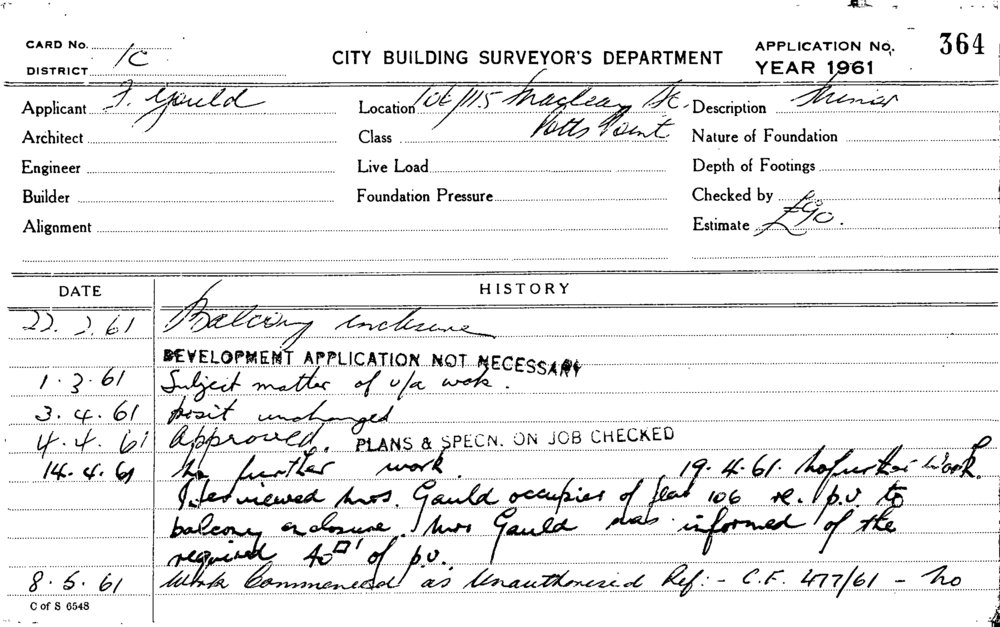 CARD No. 1C
DISTRICT
CITY BUILDING SURVEYOR'S DEPARTMENT
APPLICATION No. 364
YEAR 1961
Applicant F. Gauld
Location 106/115 Macleay St.
Potts Point
Description Minor
Architect
Class
Nature of Foundation
Engineer
Live Load
Depth of Footings
Builder
Foundation Pressure
Checked by
Alignment
Estimate £90.
DATE HISTORY
22. 2. 61 Balcony enclosure
DEVELOPMENT APPLICATION NOT NECESSARY
1. 3. 61 Subject matter of u/a work.
3. 4. 61 posit unchanged
4. 4. 61 Approved. PLANS & SPECN. ON JOB CHECKED
14. 4. 61 No further work. 19. 4. 61. No further work.
Interviewed Mrs. Gauld occupier of flat 106 re. p.v. to
balcony enclosure. Mrs Gauld was informed of the
required 40□' of p.v.
8. 5. 61 Work Commenced as Unauthorised Ref:- C.F. 477/61 - No
C of S 6548